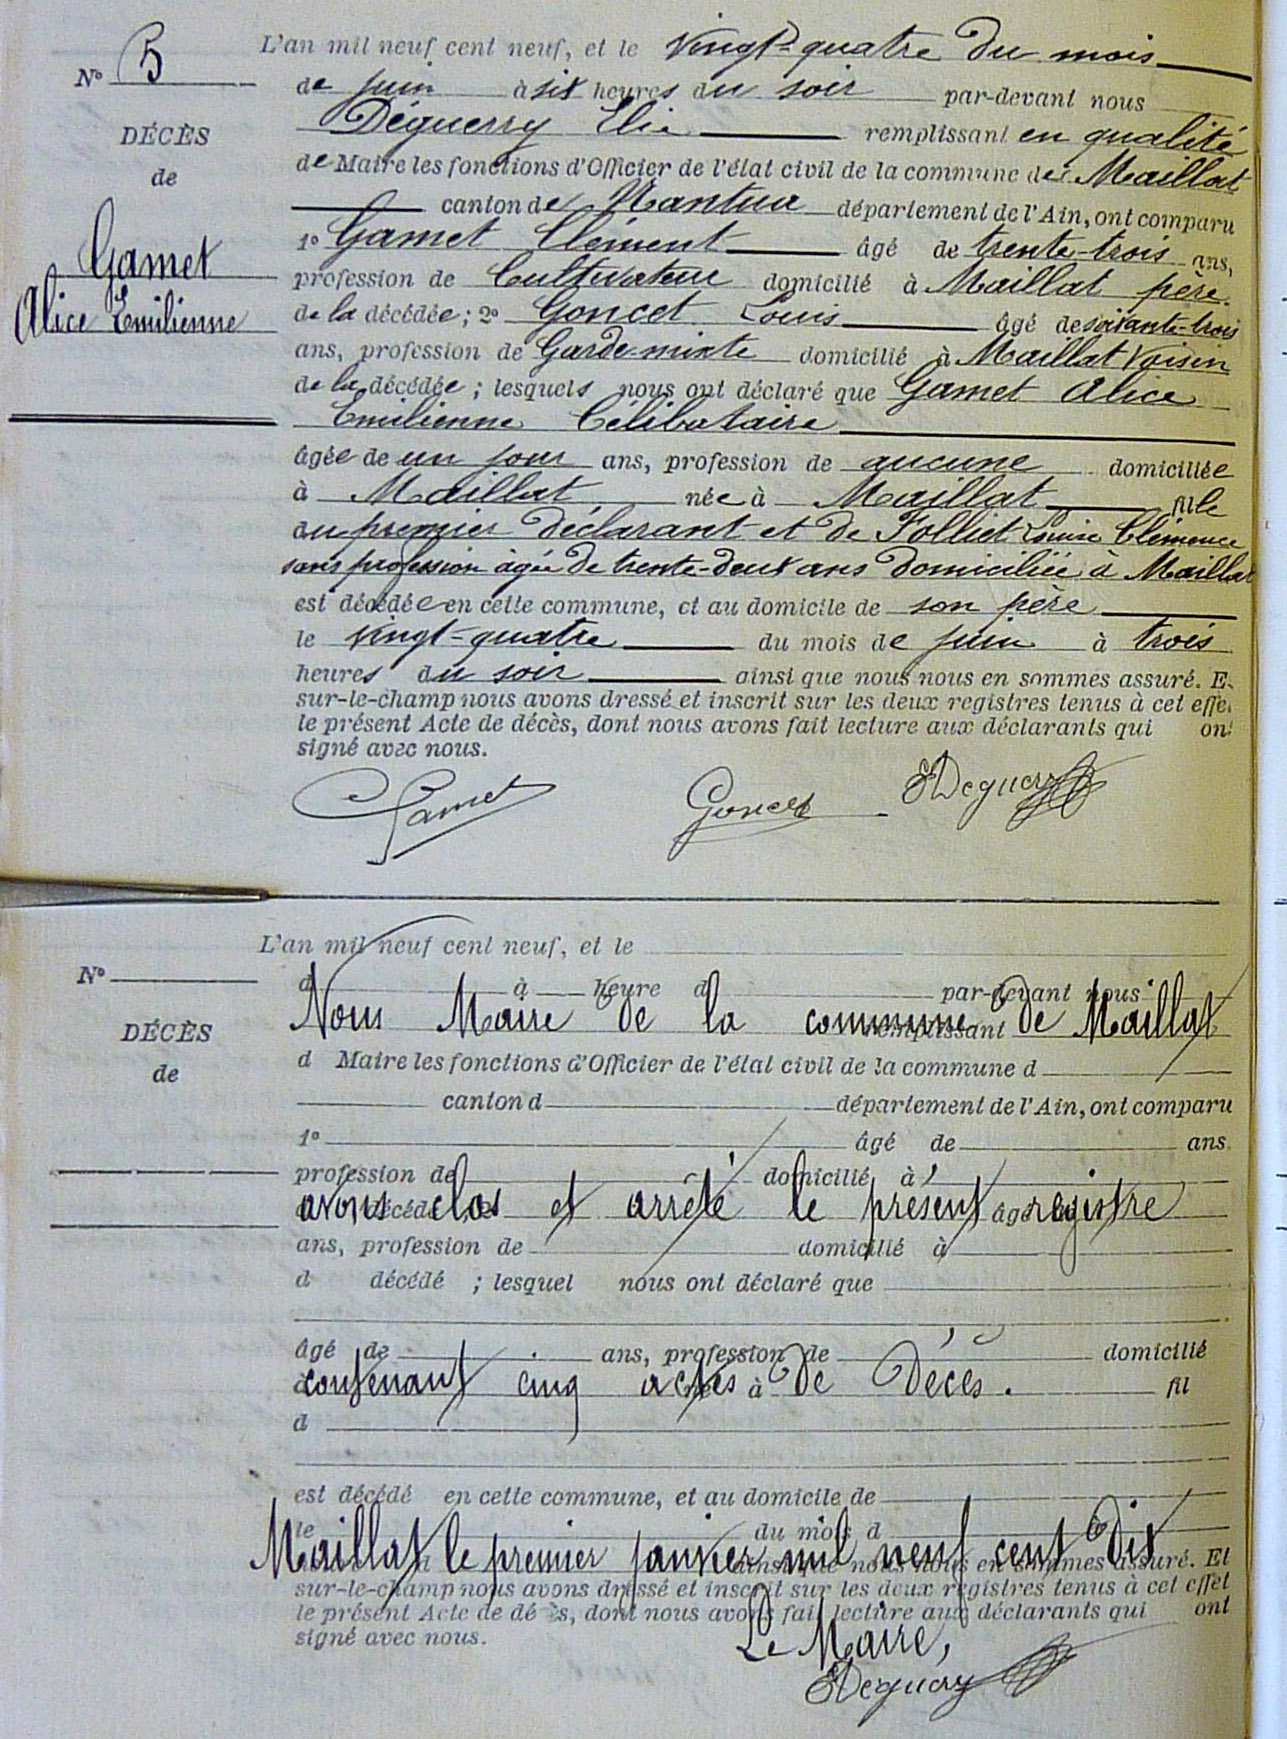 N° 5
DÉCÈS
de
Gamet
Alice Emilienne
L'an mil neuf cent neuf, et le vingt-quatre du mois
de juin à six heures du soir par-devant nous
Déguerry Elie remplissant en qualité
de Maire les fonctions d'Officier de l'état civil de la commune de Maillat
canton de Nantua département de l'Ain, ont comparu
1° Gamet Clément âgé de trente-trois ans,
profession de Cultivateur domicilié à Maillat père
de la décédée ; 2° Goncet Louis âgé de soixante-trois
ans, profession de Garde-mixte domicilié à Maillat Voisin
de la décédée ; lesquels nous ont déclaré que Gamet Alice
Emilienne Célibataire
âgée de un jour ans, profession de aucune domiciliée
à Maillat née à Maillat fille
du premier déclarant et de Folliet Louise Clémence
sans profession âgée de trente-deux ans domiciliée à Maillat
est décédée en cette commune, et au domicile de son père
le vingt-quatre du mois de juin à trois
heures du soir ainsi que nous nous en sommes assuré. E
sur-le-champ nous avons dressé et inscrit sur les deux registres tenus à cet effe
le présent Acte de décès, dont nous avons fait lecture aux déclarants qui ont
signé avec nous.
Gamet Goncet EDeguerry
N°
DÉCÈS
de
L'an mil neuf cent neuf, et le
d à heure d par-devant nous
Nous Maire de la commune de Maillat
remplissant
d Maire les fonctions d'Officier de l'état civil de la commune d
canton d département de l'Ain, ont comparu
1° âgé de ans
profession de domicilié à
avons clos et arrêté le présent registre
d décédé âgé
ans, profession de domicilié à
d décédé ; lesquel nous ont déclaré que
âgé de ans, profession de domicilié
contenant cinq actes de Décès.
à né à fil
d
est décédé en cette commune, et au domicile de
le du mois d à
Maillat le premier janvier mil neuf cent dix
ainsi que nous nous en sommes assuré. Et
sur-le-champ nous avons dressé et inscrit sur les deux registres tenus à cet effet
le présent Acte de décès, dont nous avons fait lecture aux déclarants qui ont
signé avec nous.
Le Maire,
EDeguerry